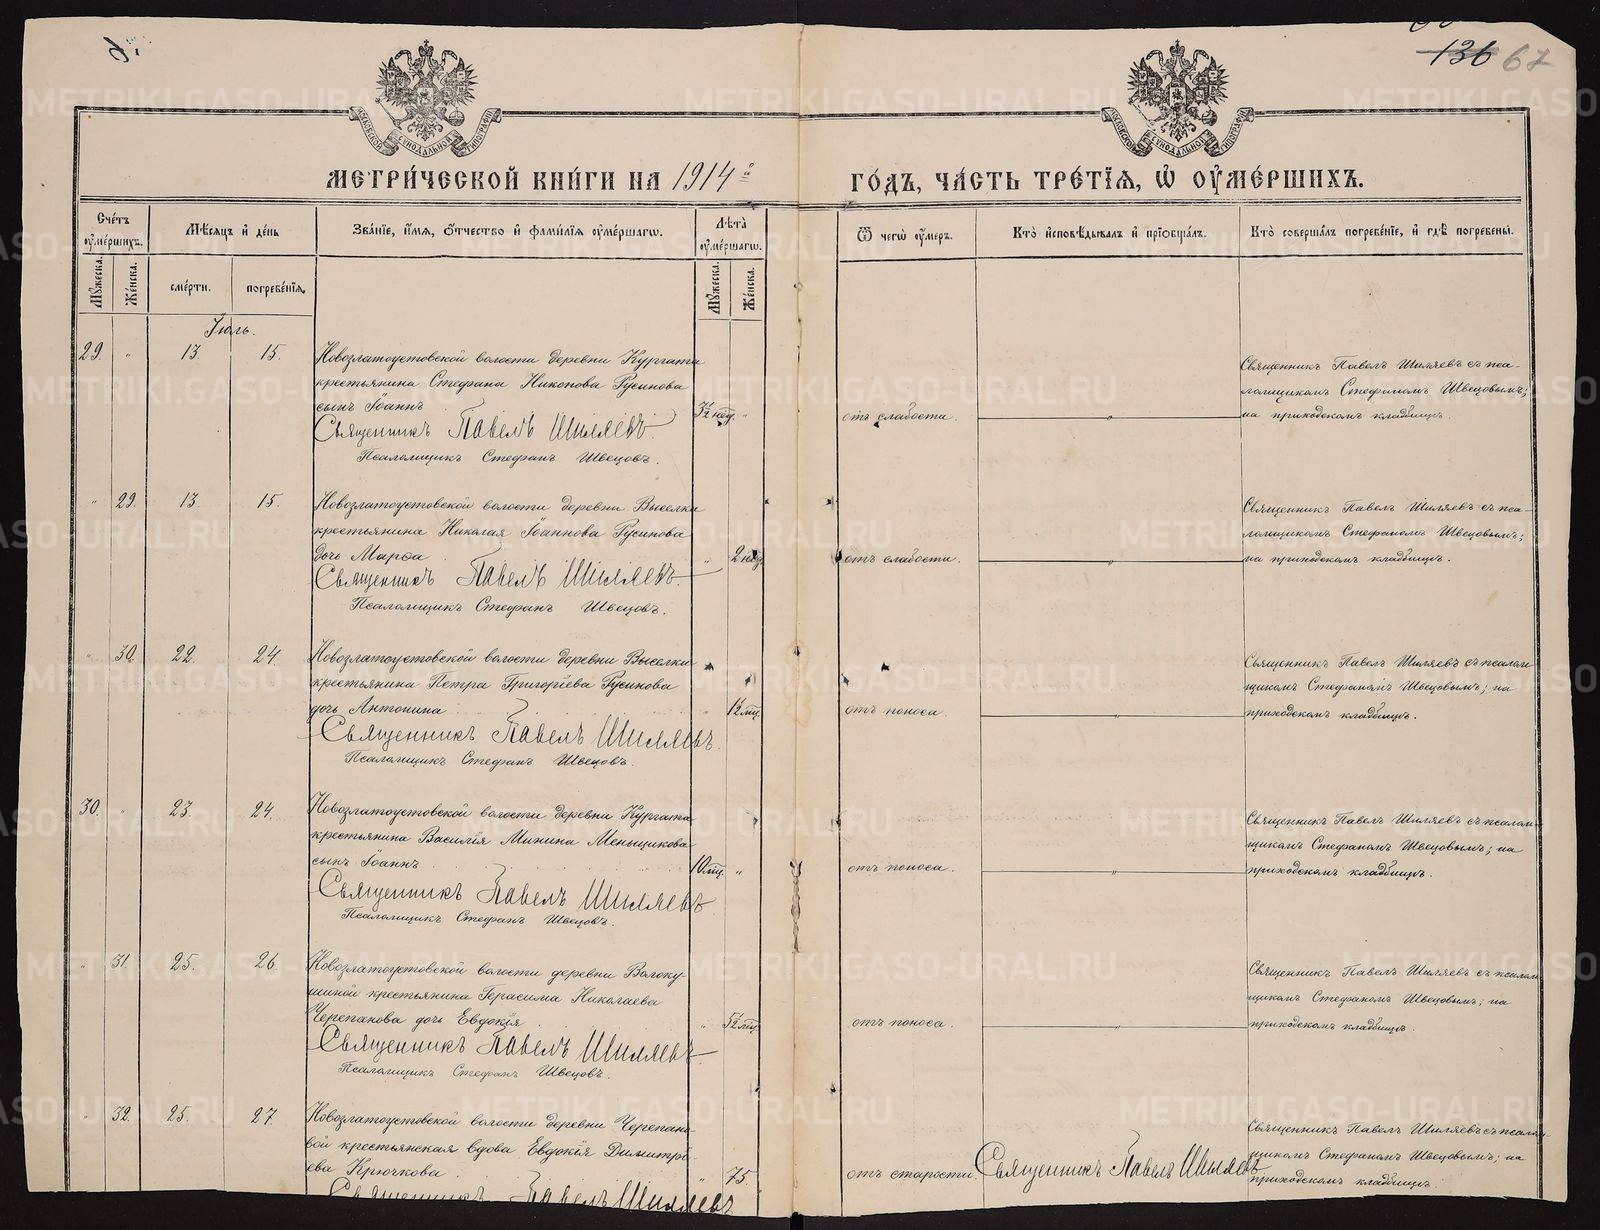 136 67
МОСКОВСКОЙ СѴНОДАЛЬНОЙ ТИПОГРАФІИ
МОСКОВСКОЙ СѴНОДАЛЬНОЙ ТИПОГРАФІИ
МЕТРИ́ЧЕСКОЙ КНИ́ГИ НА 1914й ГО́ДЪ, ЧА́СТЬ ТРЕ́ТІѦ, Ѡ҆ ОУ҆МЕ́РШИХЪ.
Сче́тъ оу҆ме́ршихъ.
Мꙋ́жеска.
Же́нска.
Мѣ́сѧцъ и҆ де́нь
сме́рти.
погребе́нїѧ.
Зва́нїе, и҆́мѧ, ѻ҆́тчество и҆ фами́лїѧ оу҆ме́ршагѡ.
Лѣта̀ оу҆ме́ршагѡ.
Мꙋ́жеска.
Же́нска.
Ѿ чегѡ̀ оу҆́меръ.
Кто̀ и҆сповѣ́дывалъ и҆ прїобща́лъ.
Кто̀ соверша́лъ погребе́нїе, и҆ гдѣ̀ погребены̀.
Іюль.
29. " 13. 15. Новозлатоустовской волости деревни Кургата
крестьянина Стефана Никонова Русинова
сынъ Іоаннъ
3½ нед. "
Священникъ Павелъ Шиляевъ.
Псаломщикъ Стефанъ Швецовъ.
отъ слабости.
"
Священникъ Павелъ Шиляевъ съ пса-
ломщикомъ Стефаномъ Швецовымъ;
на приходскомъ кладбищѣ.
" 29. 13. 15. Новозлатоустовской волости деревни Выселки
крестьянина Николая Іоаннова Русинова
дочь Марѳа
" 2 нед.
Священникъ Павелъ Шиляевъ.
Псаломщикъ Стефанъ Швецовъ.
отъ слабости.
"
Священникъ Павелъ Шиляевъ съ пса-
ломщикомъ Стефаномъ Швецовымъ;
на приходскомъ кладбищѣ.
" 30. 22. 24. Новозлатоустовской волости деревни Выселки
крестьянина Петра Григоріева Русинова
дочь Антонина
Священникъ Павелъ Шиляевъ.
Псаломщикъ Стефанъ Швецовъ.
отъ поноса.
"
Священникъ Павелъ Шиляевъ съ псалом-
щикомъ Стефаномъ Швецовымъ; на
приходскомъ кладбищѣ.
30. " 23. 24. Новозлатоустовской волости деревни Кургата
крестьянина Василія Минина Меньщикова
сынъ Іоаннъ
10 мц. "
Священникъ Павелъ Шиляевъ
Псаломщикъ Стефанъ Швецовъ.
отъ поноса.
"
Священникъ Павелъ Шиляевъ съ псалом-
щикомъ Стефаномъ Швецовымъ; на
приходскомъ кладбищѣ.
" 31. 25. 26. Новозлатоустовской волости деревни Волоку-
шиной крестьянина Герасима Николаева
Черепанова дочь Евдокія
" 5½ мц.
Священникъ Павелъ Шиляевъ
Псаломщикъ Стефанъ Швецовъ.
отъ поноса.
"
Священникъ Павелъ Шиляевъ съ псалом-
щикомъ Стефаномъ Швецовымъ; на
приходскомъ кладбищѣ.
" 32. 25. 27. Новозлатоустовской волости деревни Черепано-
вой крестьянская вдова Евдокія Димитрі-
ева Крючкова
75.
Священникъ Павелъ Шиляевъ
отъ старости.
Священникъ Павелъ Шиляевъ
Священникъ Павелъ Шиляевъ съ псалом-
щикомъ Стефаномъ Швецовымъ; на
приходскомъ кладбищѣ.
METRIKI.GASO-URAL.RU